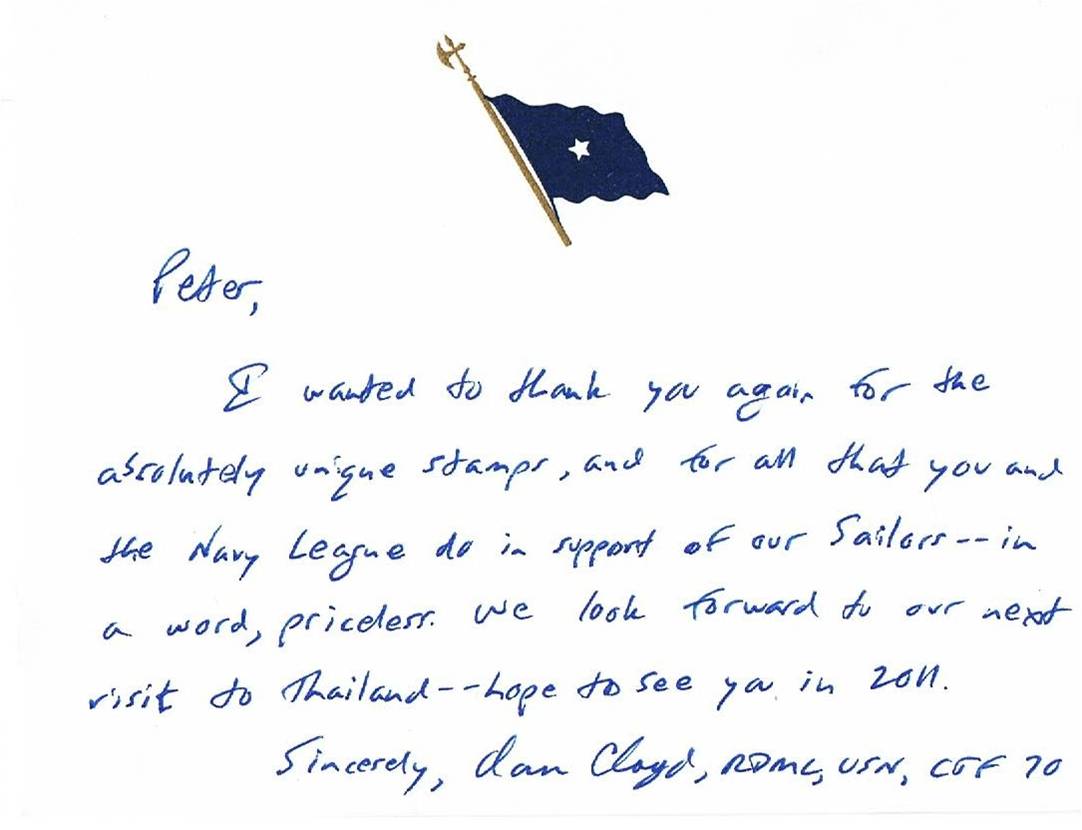 Peter,
I wanted to thank you again for the
absolutely unique stamps, and for all that you and
the Navy League do in support of our Sailors -- in
a word, priceless. We look forward to our next
visit to Thailand -- hope to see you in 2011.
Sincerely, Dan Cloyd, RDML, USN, CTF 70